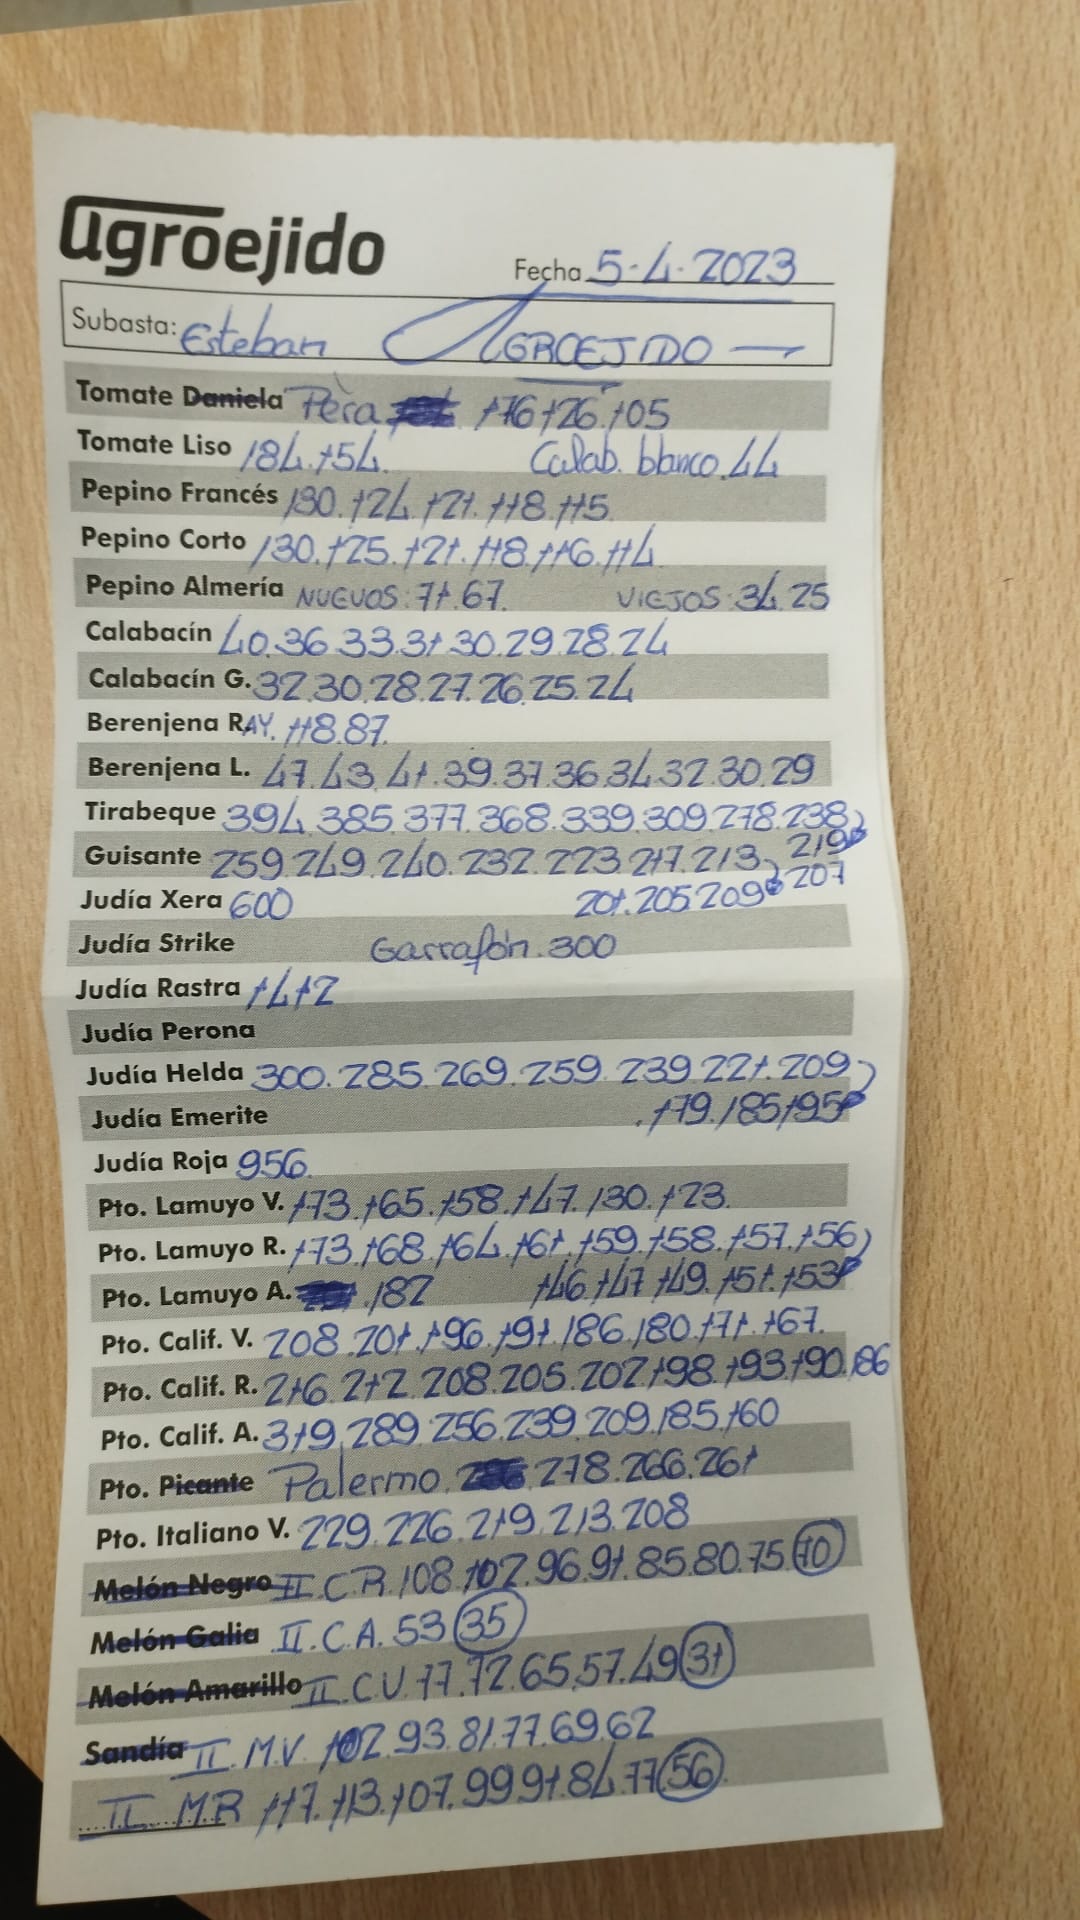 agroejido
Fecha 5-4-2023
Subasta: Esteban AGROEJIDO
Tomate Daniela Pera 176 126 105
Tomate Liso 184.154. Calab. blanco.44
Pepino Francés 130.124.121.118.115.
Pepino Corto 130.125.121.118.116.114
Pepino Almería NUEVOS:71.67. VIEJOS:34.25
Calabacín 40.36.33.31.30.29.28.24
Calabacín G. 32.30.28.27.26.25.24
Berenjena RAY. 118.87.
Berenjena L. 47.43.41.39.37.36.34.32.30.29
Tirabeque 394.385.377.368.339.309.278.238
219
Guisante 259.249.240.232.223.217.213
207
Judía Xera 600 201.205.209
Judía Strike Garrafón.300
Judía Rastra 142
Judía Perona
Judía Helda 300.285.269.259.239.221.209
Judía Emerite .179.185.195
Judía Roja 956.
Pto. Lamuyo V. 173.165.158.147.130.123.
Pto. Lamuyo R. 173.168.164.161.159.158.157.156
Pto. Lamuyo A. .182 146.147.149.151.153
Pto. Calif. V. 208.201.196.191.186.180.171.167.
Pto. Calif. R. 216.212.208.205.202.198.193.190.186
Pto. Calif. A. 319.289.256.239.209.185.160
Pto. Picante Palermo. 278.266.261
Pto. Italiano V. 229.226.219.213.208
Melón Negro II.C R.108.102.96.91.85.80.75.70
Melón Galia II.C.A.53 35
Melón Amarillo II.C.V.77.72.65.57.49 31
Sandía II.M.V. 102.93.81.77.69.62
II.MR 117.113.107.99.91.84.77 56